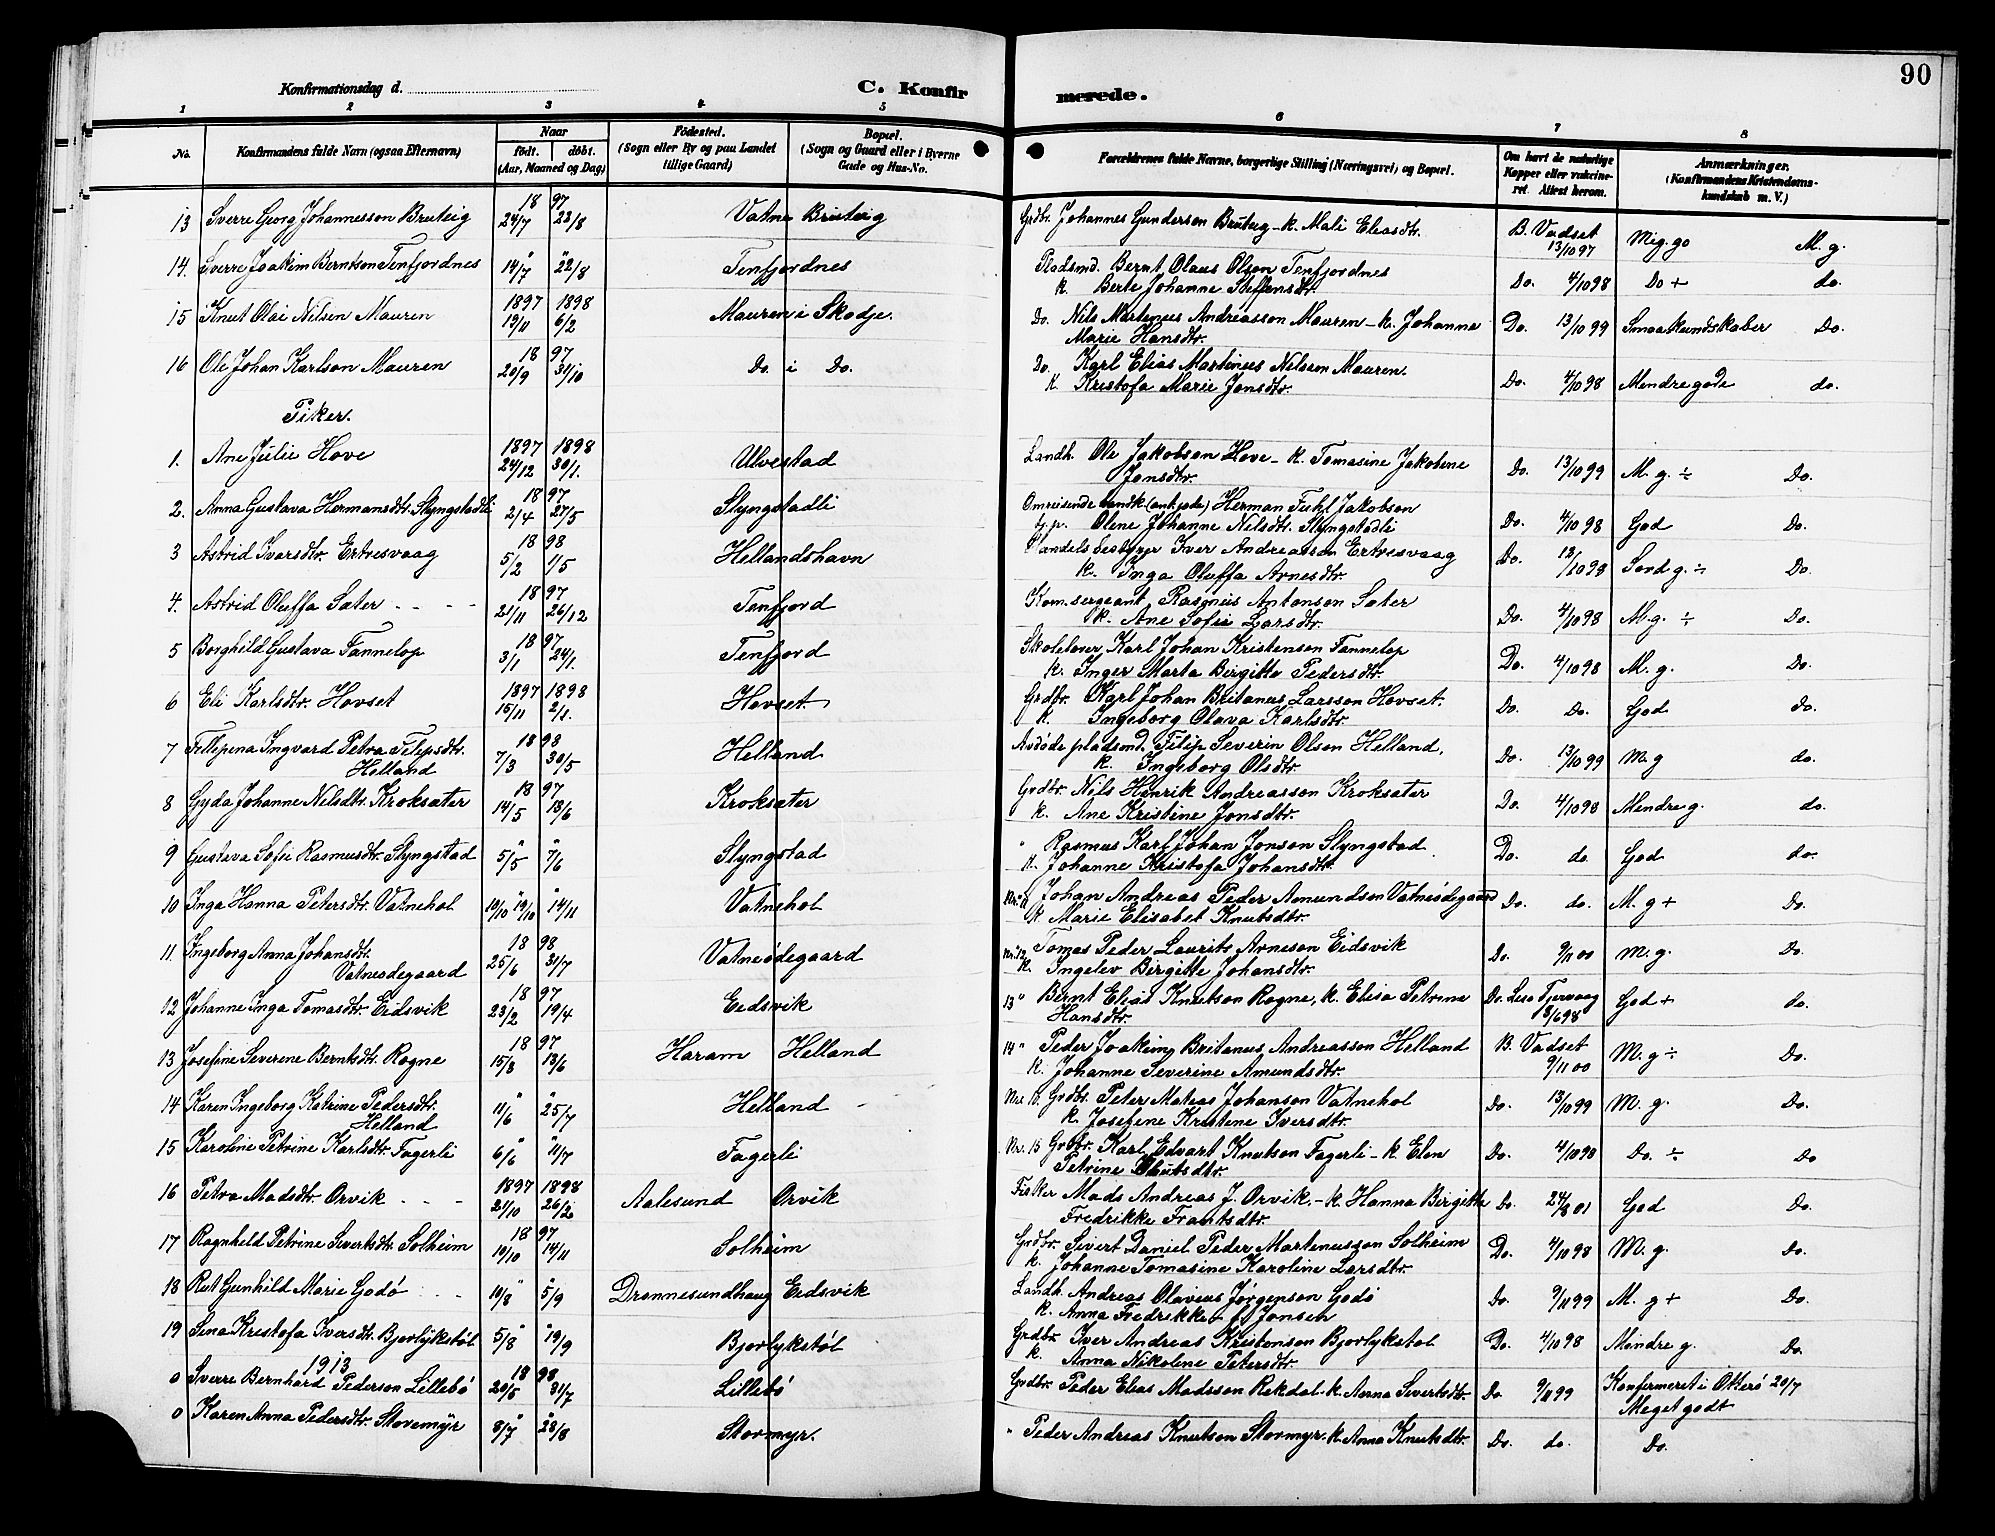 90
Konfirmationsdag d.
C. Konfirmerede.
1 2 3 4 5 6 7 8
No. Konfirmandens fulde Navn (ogsaa Efternavn) Naar födt. döbt. (Aar, Maaned og Dag) Födested. (Sogn eller By og paa Landet tillige Gaard) Bopæl. (Sogn og Gaard eller i Byerne Gade og Hus-No. Forældrenes fulde Navne, borgerlige Stilling (Næringsvei) og Bopæl. Om havt de naturlige Kopper eller vakcineret. Attest herom. Anmærkninger. (Konfirmandens Kristendomskundskab m. V.)
13 Sverre Georg Johannesson Bruteig 1897 24/7 23/8 Vatne Bruteig Grdbr. Johannes Gunderson Bruteig - k. Mali Eliasdtr. B. Vadset 13/10 97 Meg. go M. g.
14. Sverre Joakim Berntson Tenfjordnes " 14/7 " 22/8 Tenfjordnes Pladsmd. Bernt Olaus Olson Tenfjordnes
k. Berte Johanne Steffensdtr. Do. 4/10 98 Do + do.
15 Knut Olai Nilsen Mauren 1897 19/11 1898 6/2 Mauren i Skodje. Do. Nils Martinus Andreasson Mauren - k. Johanna
Marie Hansdtr. Do. 13/10 99 Smaa kundskaber Do.
16 Ole Johan Karlson Mauren 1897 20/9 31/10 Do. i Do. Do. Karl Elias Martinus Nilsson Mauren.
k. Kristofa Marie Jonsdtr. Do. 4/10 98 Mendre gode do.
Piker.
1. Ane Julie Hove 1897 24/12 1898 30/1. Ulvestad Landh. Ole Jakobson Hove - k. Tomasine Jakobine
Jonsdtr. Do. 13/10 99 M. g. ÷ Do.
2. Anna Gustava Hermansdtr. Slyngstadli 1897 2/4 27/5 Slyngstadli Omreisende Herman Jakobson
Olene Johanne Nilsdtr. Slyngstadli Do. 4/10 98 God Do.
3 Astrid Iversdtr. Ertresvaag 1898 5/2 1/5 Hellandshavn Handelsbestyrer Iver Andreasson Ertresvaag
k. Inga Oluffa Arnesdtr. Do. 13/10 98 Særd g. ÷ Do.
4. Astrid Oluffa Sæter 1897 21/11 26/12 Tenfjord Kom.sergeant Rasmus Antonson Sæter
k. Ane Sofie Larsdtr. Do. 4/10 98 M. g. ÷ Do.
5 Borghild Gustava Fannelop 1897 3/1 24/1. Tenfjord Skolelærer Karl Johan Kristenson Fannelop
k. Inger Marta Birgitte Pedersdtr. Do. 4/10 98 M. g. Do.
6 Eli Karlsdtr. Hovset 1897 15/11 1898 2/1. Hovset Grdbr. Karl Johan Britanus Larsson Hovset.
k. Ingeborg Olava Karlsdtr. Do. Do. God do.
7 Fillipena Ingvard Petra Filipsdtr.
Helland 1898 7/3 30/5 Helland Avdøde pladsmd. Filip Severin Olson Helland.
k. Ingeborg Olsdtr. Do. 13/10 99 M. g do.
8 Gyda Johanne Nilsdtr. Kroksæter 1897 14/5 18/6 Kroksæter Grdbr. Nils Henrik Andreasson Kroksæter
k. Ane Kristine Jonsdtr. Do. 4/10 98 Mendre g. do.
9 Gustava Sofie Rasmusdtr. Slyngstad " 5/5 " 7/6 Slyngstad " Rasmus Karl Johan Jonson Slyngstad
k. Johanne Kristofa Johansdtr. Do. do. God do.
10 Inga Hanna Petersdtr. Vatnehol 19/10 19/10 14/11 Vatnehol Nr. 11 Johan Andreas Peder Amundson Vatneødegaard
k. Marie Elisabet Knutsdtr. Do. do. M. g + Do.
11. Ingeborg Anna Johansdtr.
Vatneødegaard 1898 25/6 31/7 Vatneødegaard Nr. 12 Tomas Peder Laurits Arneson Eidsvik
k. Ingelev Birgitte Johansdtr. Do. 9/11 00 M. g. Do.
12 Johanne Inga Tomasdtr. Eidsvik 1897 23/2 19/4 Eidsvik 13 " Bernt Elias Knutson Rogne, k. Elisa Petrine
Hansdtr. Do. Tjervaag 18/6 98 God + do.
13 Josefine Severine Berntsdtr. Rogne 1897 15/3 13/6 Haram Helland 14 " Peder Joakim Britanus Andreasson Helland
k. Johanne Severine Amundsdtr. B. Vadset 9/11 00 M. g ÷ Do.
14 Karen Ingeborg Katrine Pedersdtr.
Helland " 11/6 " 25/7 Helland Grdbr. Peter Mateas Johanson Vatnehol
k. Josefine Kristine Iversdtr. Do. 13/10 99 M. g. Do.
15 Karoline Petrine Karlsdtr. Fagerli " 6/6 " 11/7 Fagerli Nr. 15 Grdbr. Karl Edvart Knutson Fagerli - k. Elen
Petrine Knutsdtr. Do. 4/10 98 Do. ÷ Do
16 Petra Madsdtr. Orvik 1897 21/10 1898 26/2 Aalesund Orvik Fisker Mads Andreas J. Orvik. - k. Hanna Birgitte
Fredrikke Frantsdtr. Do. 24/8 01 God Do.
17 Ragnhild Petrine Sivertsdtr. Solheim 1897 19/10 14/11 Solheim Grdbr. Sivert Daniel Peder Martinusson Solheim
k. Johanne Tomasine Karoline Larsdtr. Do. 4/10 98 M. g. do.
18 Rut Gunhild Marie Godø " 10/8 " 5/9 Drønnesundhaug Eidsvik Landh. Andreas Olavius Jørgenson Godø
k. Anna Fredrikke f. Jonsen Do. 9/11 99 M. g + Do.
19 Sina Kristofa Iversdtr. Bjorlykstøl " 5/8 " 19/9 Bjorlykstøl Grdbr. Iver Andreas Kristenson Bjorlykstøl
k. Anna Nikoline Petersdtr. Do. 4/10 98 Mindre g. Do.
1913
0 Sverre Bernhard Pederson Lillebø 1898 20/5 31/7 Lillebø Grdbr. Peder Elias Madsson Rekdal - k. Anna Sivertsdtr. Do 9/11 99 Konfirmeret i Otterø 20/7
Meget godt
0 Karen Anna Pedersdtr. Stormyr " 8/7 " 28/8 Stormyr. " Peder Andreas Knutson Stormyr. k. Anna Knutsdtr. Do. do. Do.